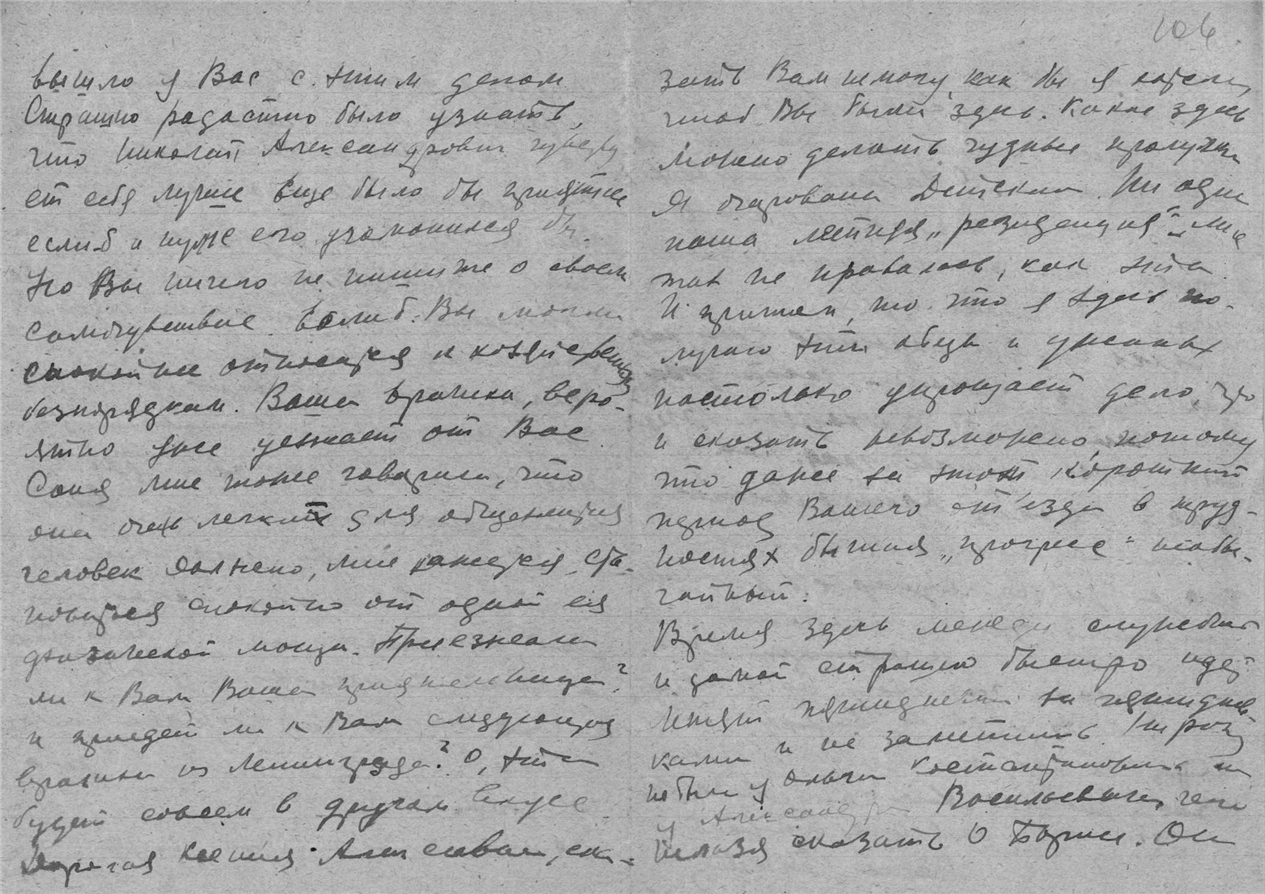 106
вышло у Вас с этим делом
Страшно радостно было узнать,
что Николай Александрович чувству
ет себя лучше Еще было бы приятнее
если б и муж его успокоился бы.
Но Вы ничего не пишите о своем
самочувствие. Еслиб Вы могли
спокойнее относится к хозяйственным
безпорядкам. Ваша врачиха, веро-
ятно уже уезжает от Вас
Соня мне тоже говорила, что
она очень легкий для общежития
человек Должно, мне кажется, ста-
новится спокойно от одной ея
физической мощи. Приезжала
ли к Вам Ваша приятельница?
и приедет ли к Вам следующая
врачиха из Ленинграда? О, эта
будет совсем в другом вкусе
Дорогая Ксения Алексеевна, ска-
зать Вам немогу, как бы я хотела,
чтоб Вы были здесь. Какие здесь
можно делать чудные прогулки
Я очарована Детским. Ни одна
наша летняя „резиденция" мне
так не нравилась, как эта
И притом, то что я здесь по-
лучаю эти обеды и ужины
настолько упрощает дело, что
и сказать невозможно потому
что даже за этот короткий
период Вашего от'езда в труд-
ностях бытия „прогресс" необы-
чайный.
Время здесь между службой
и дачей страшно быстро идет
Летят пятидневки за пятиднев-
ками и не заметишь. Ни разу
не была у Ольги Константиновны ни
у Александры Васильевны, чего
нельзя сказать о Борисе. Он